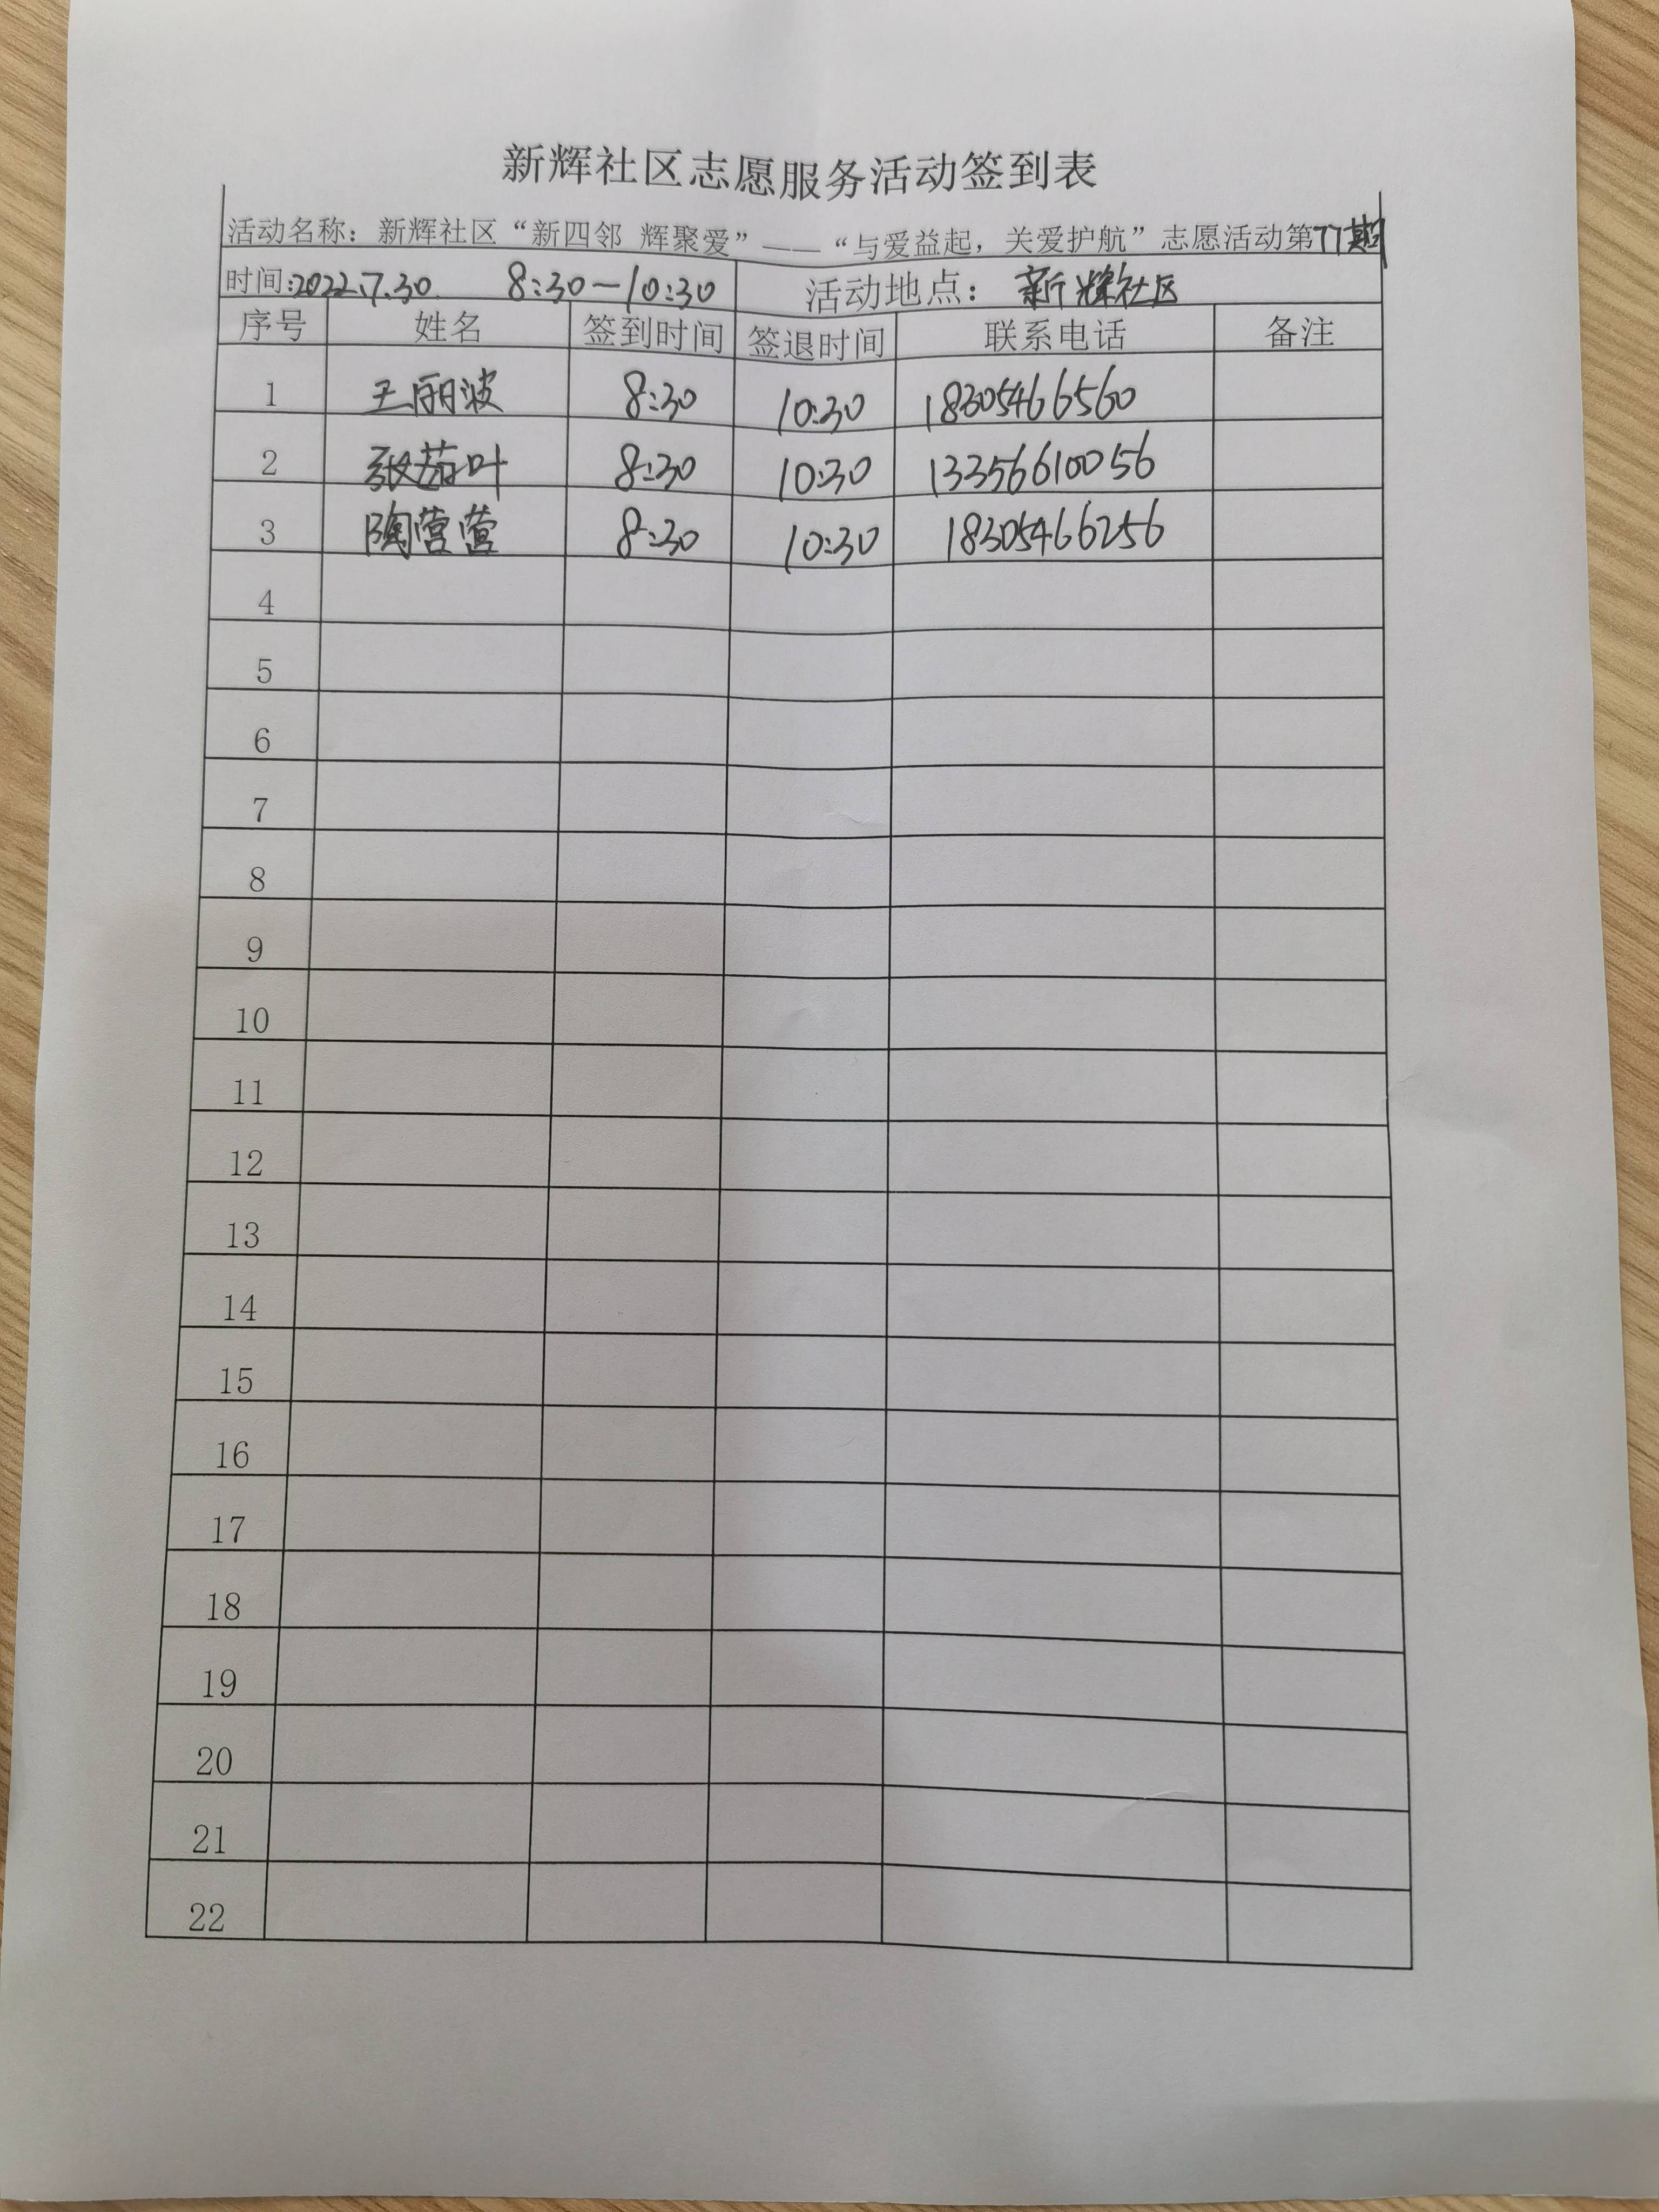 新辉社区志愿服务活动签到表
活动名称：新辉社区“新四邻 辉聚爱”——“与爱益起，关爱护航”志愿活动第77期
时间：2022.7.30. 8:30—10:30 活动地点：新辉社区
序号 姓名 签到时间 签退时间 联系电话 备注
1 王丽波 8:30 10:30 18305466560
2 张茹叶 8:30 10:30 13356610056
3 陶营营 8:30 10:30 18305466256
4
5
6
7
8
9
10
11
12
13
14
15
16
17
18
19
20
21
22